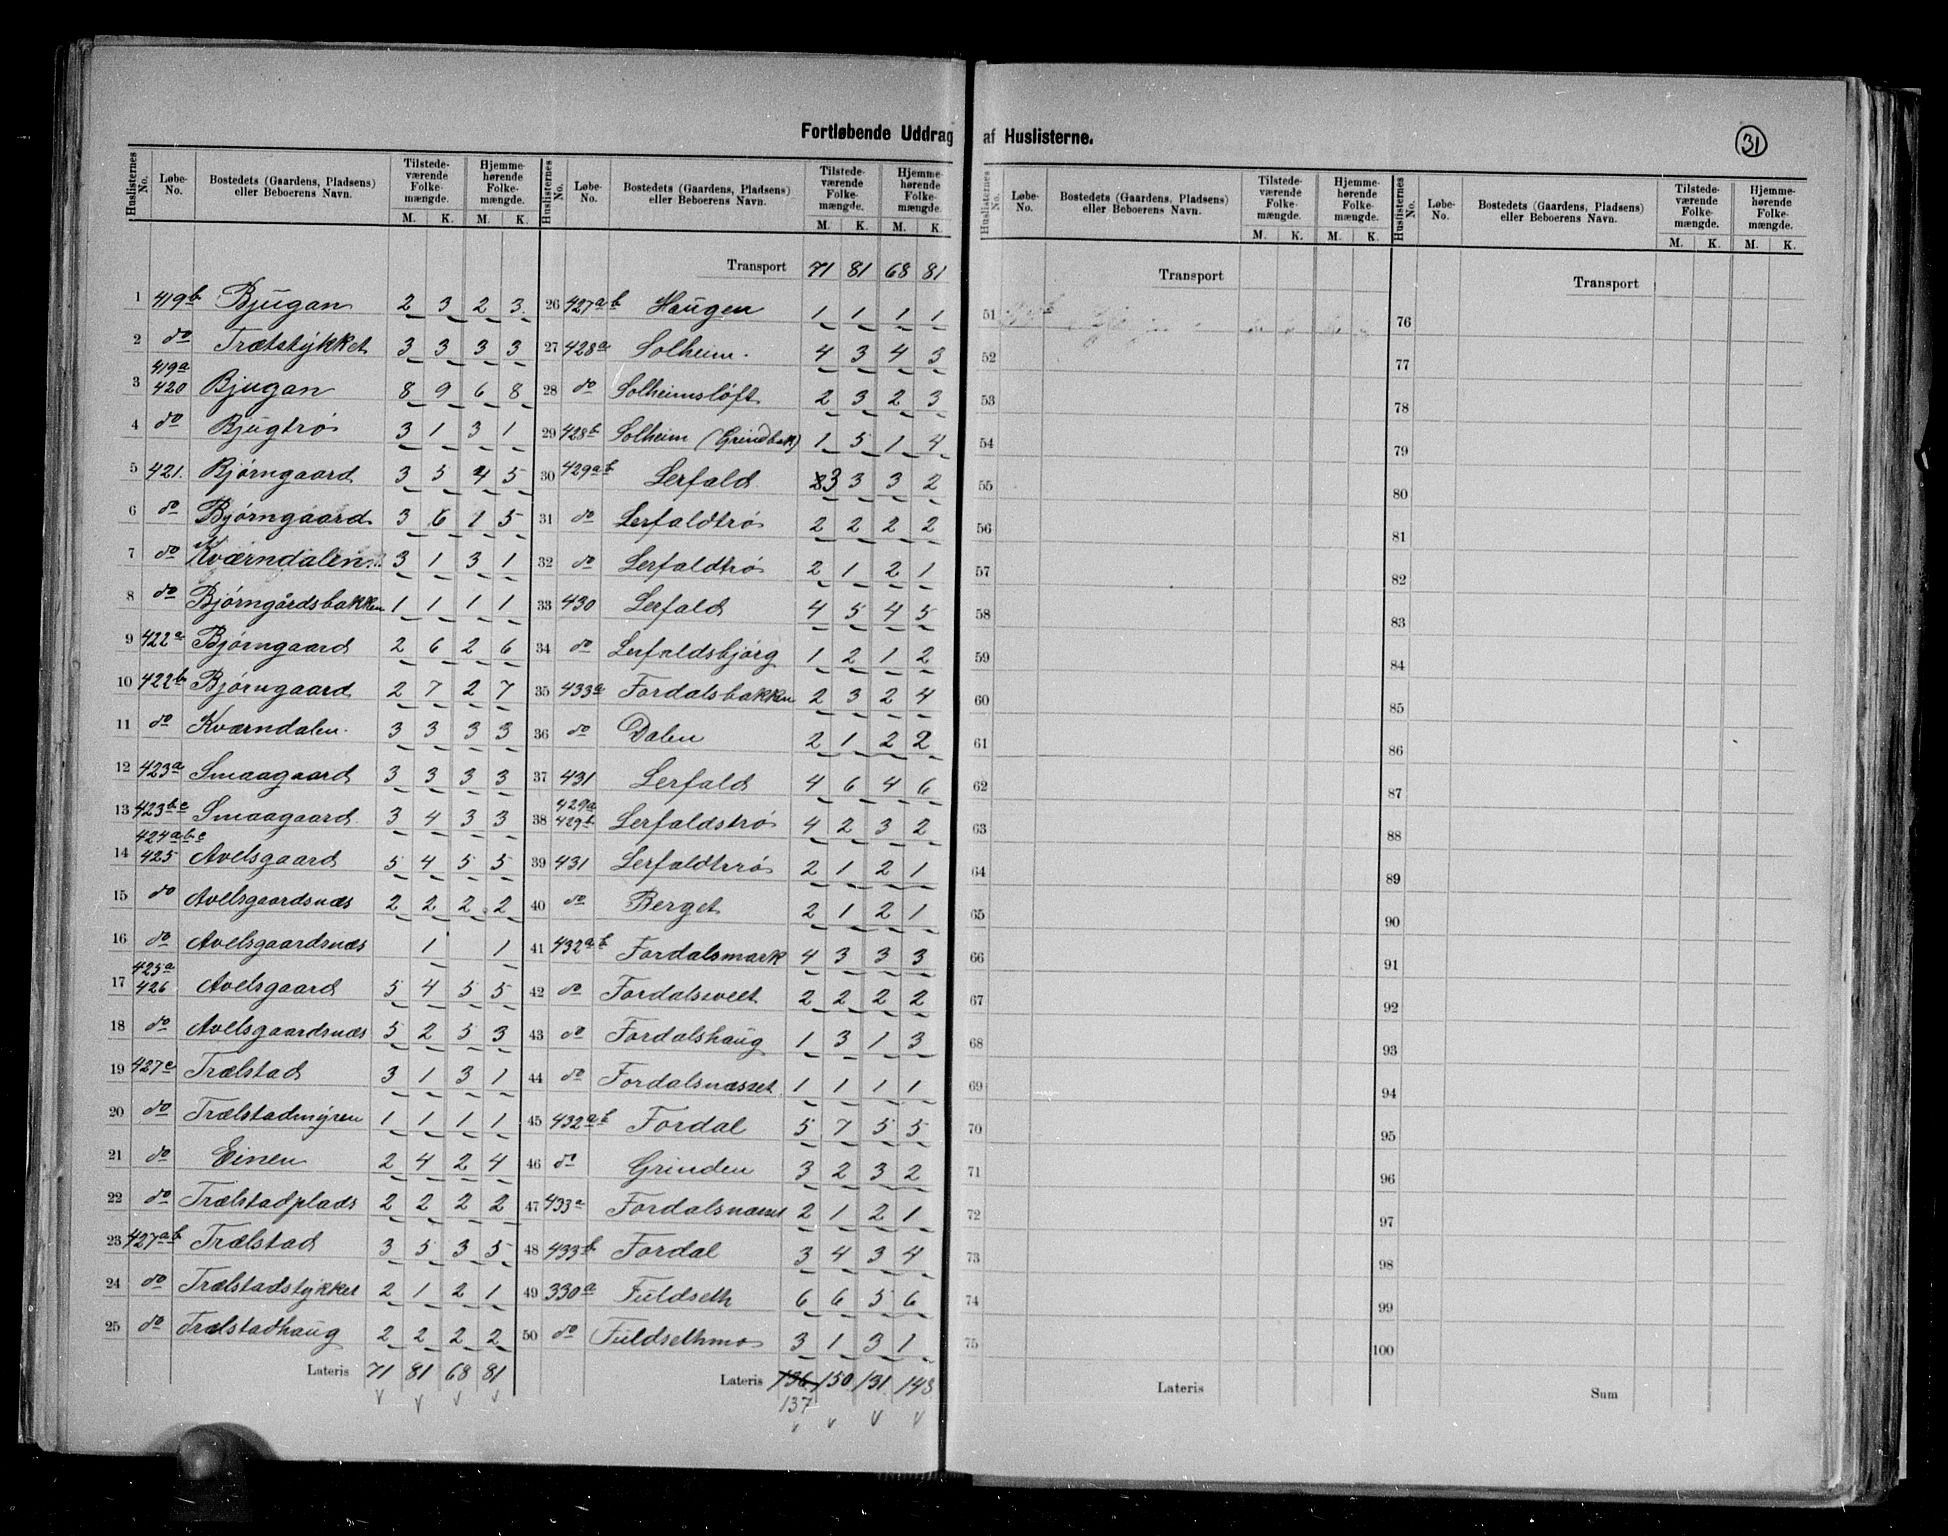 Fortløbende Uddrag af Huslisterne.
31
Huslisternes No. Løbe-No. Bostedets (Gaardens, Pladsens) eller Beboerens Navn. Tilstedeværende Folkemængde. M. K. Hjemmehørende Folkemængde. M. K.
1 419b Bjugan 2 3 2 3
2 do Trætstykket 3 3 3 3
3 419a 420 Bjugan 8 9 6 8
4 do Bjugtrø 3 1 3 1
5 421. Bjørngaard 3 5 4 5
6 do Bjørngaard 3 6 1 5
7 do Kværndalen 3 1 3 1
8 do Bjørngårdsbakken 1 1 1 1
9 422a Bjørngaard 2 6 2 6
10 422b Bjørngaard 2 7 2 7
11 do Kværndalen 3 3 3 3
12 423a Smaagaard 3 3 3 3
13 423bc Smaagaard 3 4 3 3
14 424abc 425 Avelsgaard 5 4 5 5
15 do Avelsgaardsnæs 2 2 2 2
16 do Avelsgaardsnæs 1 1
17 425a 426 Avelsgaard 5 4 5 5
18 do Avelsgaardsnæs 5 2 5 3
19 427c Trælstad 3 1 3 1
20 do Trælstadmyren 1 1 1 1
21 do Einen 2 4 2 4
22 do Trælstadplads 2 2 2 2
23 427ab Trælstad 3 5 3 5
24 do Trælstadstykket 2 1 2 1
25 do Trælstadhaug 2 2 2 2
Lateris 71 81 68 81
Huslisternes No. Løbe-No. Bostedets (Gaardens, Pladsens) eller Beboerens Navn. Tilstedeværende Folkemængde. M. K. Hjemmehørende Folkemængde. M. K.
Transport 71 81 68 81
26 427ab Haugen 1 1 1 1
27 428a Solheim 4 3 4 3
28 do Solheimsløft 2 3 2 3
29 428b Solheim (Grindbak) 1 5 1 4
30 429ab Lerfald 3 3 3 2
31 do Lerfaldtrø 2 2 2 2
32 do Lerfaldtrø 2 1 2 1
33 430 Lerfald 4 5 4 5
34 do Lerfaldsbjørg 1 2 1 2
35 433a Fordalsbakken 2 3 2 4
36 do Dalen 2 1 2 2
37 431 Lerfald 4 6 4 6
38 429a 429b Lerfaldstrø 4 2 3 2
39 431 Lerfaldtrø 2 1 2 1
40 do Berget 2 1 2 1
41 432ab Fordalsmark 4 3 3 3
42 do Fordalsveet 2 2 2 2
43 do Fordalshaug 1 3 1 3
44 do Fordalsnæsset 1 1 1 1
45 432ab Fordal 5 7 5 5
46 do Grinden 3 2 3 2
47 433a Fordalsnæsset 2 1 2 1
48 433b Fordal 3 4 3 4
49 330a Fuldseth 6 6 5 6
50 do Fuldsethmo 3 1 3 1
Lateris 136 150 131 148
137
Huslisternes No. Løbe-No. Bostedets (Gaardens, Pladsens) eller Beboerens Navn. Tilstedeværende Folkemængde. M. K. Hjemmehørende Folkemængde. M. K.
Transport
51
52
53
54
55
56
57
58
59
60
61
62
63
64
65
66
67
68
69
70
71
72
73
74
75
Lateris
Huslisternes No. Løbe-No. Bostedets (Gaardens, Pladsens) eller Beboerens Navn. Tilstedeværende Folkemængde. M. K. Hjemmehørende Folkemængde. M. K.
Transport
76
77
78
79
80
81
82
83
84
85
86
87
88
89
90
91
92
93
94
95
96
97
98
99
100
Sum